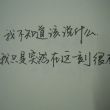 我不知道该说什么
我只是突然在这一刻很